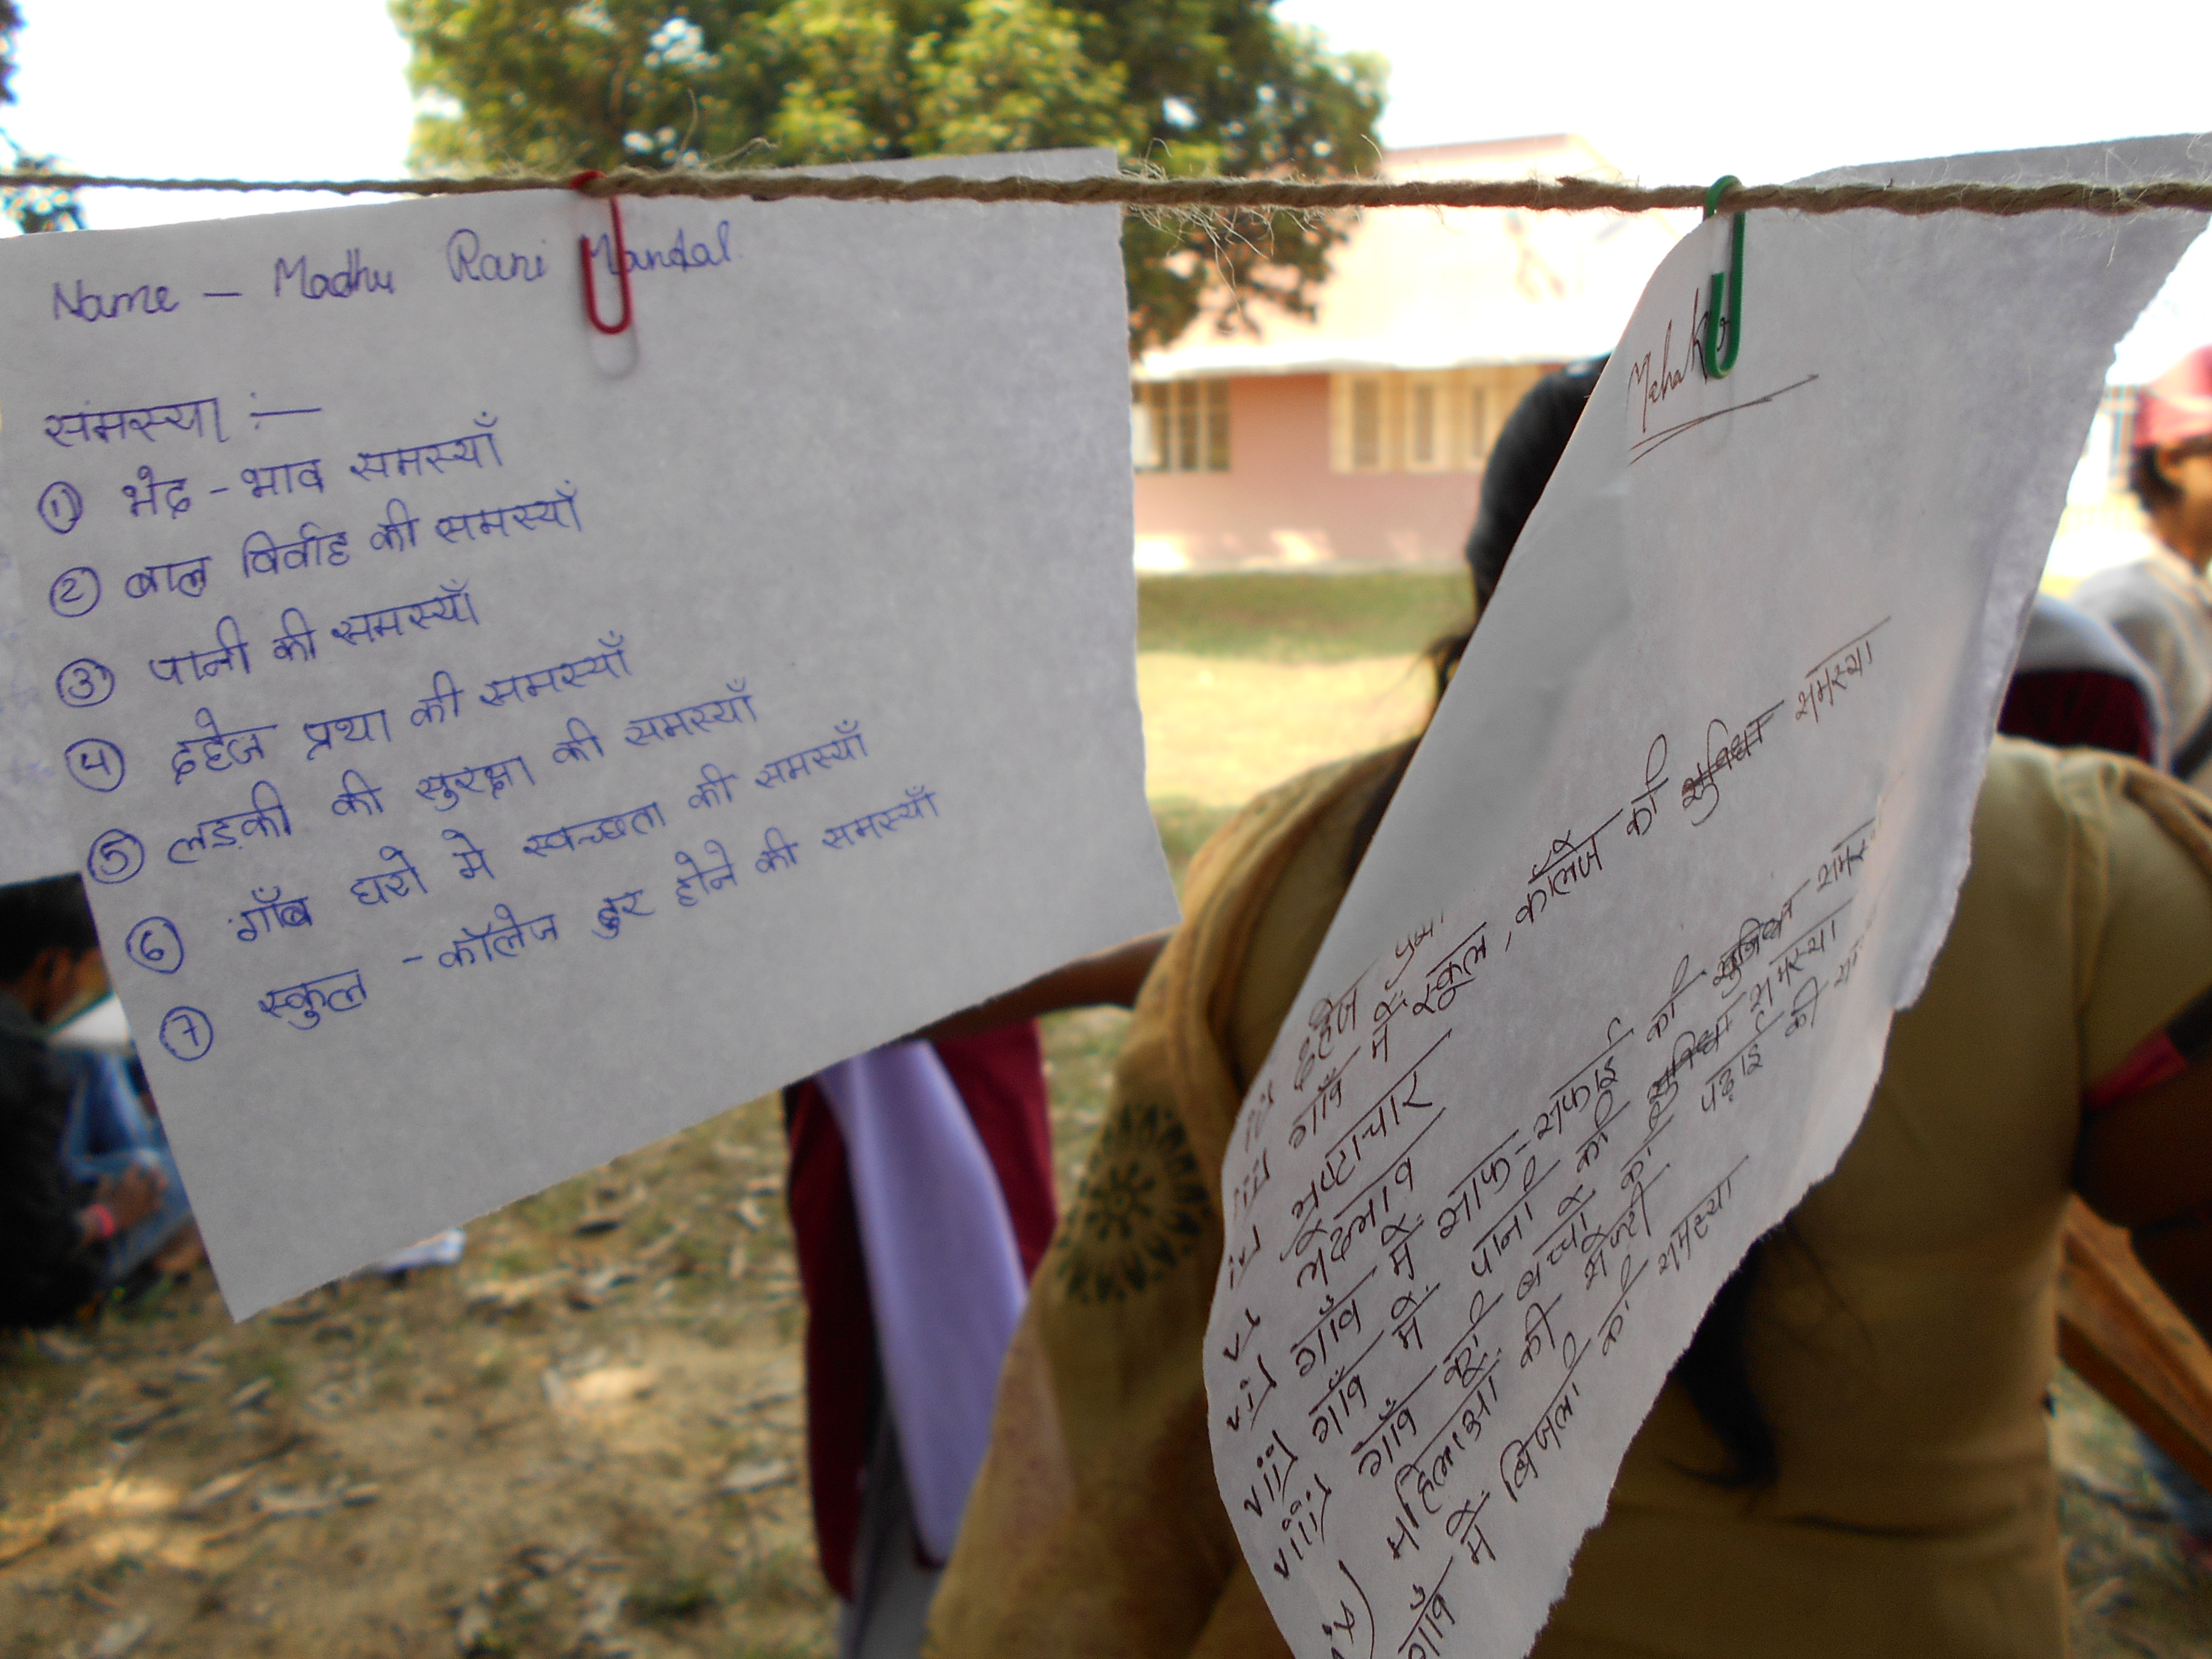 Name - Madhu Rani Mandal
समस्या :-
① भेद - भाव समस्याँ
② बाल विर्वाह की समस्याँ
③ पानी की समस्याँ
④ दहेज प्रथा की समस्याँ
⑤ लड़की की सुरक्षा की समस्याँ
⑥ गाँब घरो मे स्वच्छता की समस्याँ
⑦ स्कुल - कॉलेज दुर होने की समस्याँ
Mehak
ii) दहेज प्रथा
iii) गाँव में स्कूल, कॉलेज की सुविधा समस्या
iv) भ्रष्टाचार
v) भेदभाव
vi) गाँव में साफ-सफाई की सुविधा
vii) गाँव में पानी की सुविधा समस्या
viii) गाँव के बच्चों की पढ़ाई की
ix) महिलाओं की
गाँव में बिजली की समस्या